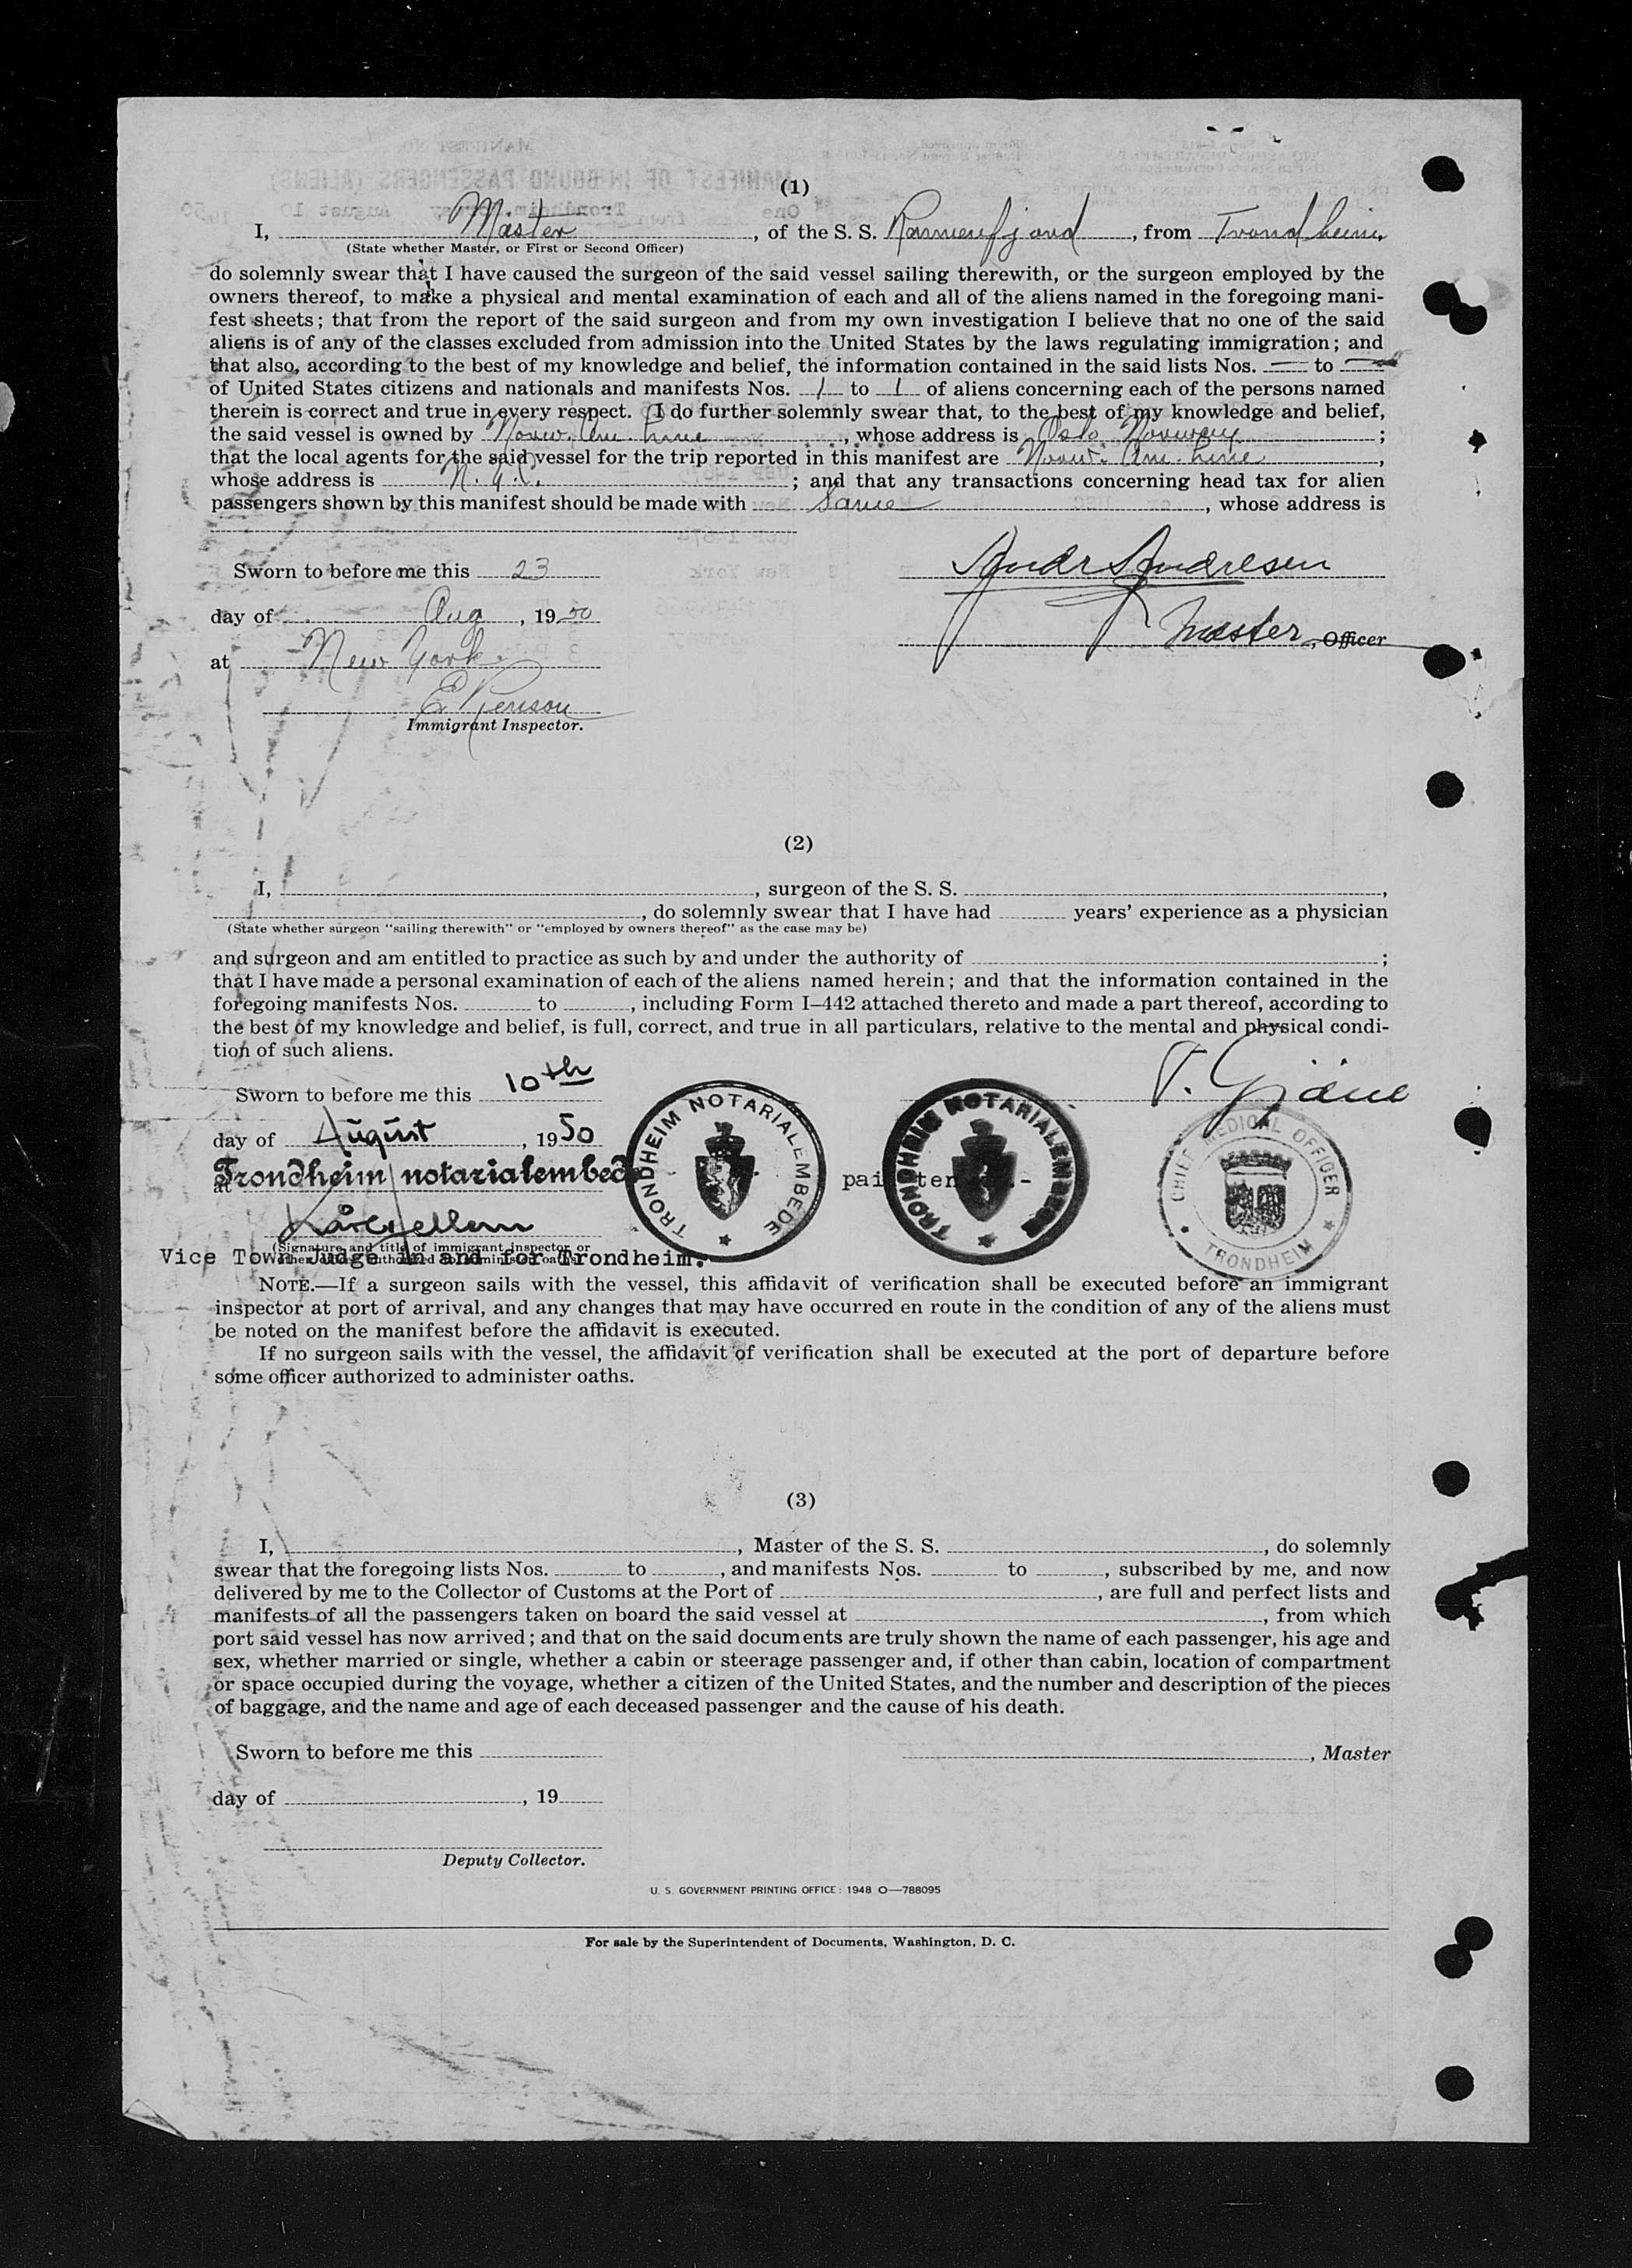 (1)
I, Master, of the S. S. Rannenfjord, from Trondheim,
(State whether Master, or First or Second Officer)
do solemnly swear that I have caused the surgeon of the said vessel sailing therewith, or the surgeon employed by the
owners thereof, to make a physical and mental examination of each and all of the aliens named in the foregoing mani-
fest sheets; that from the report of the said surgeon and from my own investigation I believe that no one of the said
aliens is of any of the classes excluded from admission into the United States by the laws regulating immigration; and
that also, according to the best of my knowledge and belief, the information contained in the said lists Nos. — to —
of United States citizens and nationals and manifests Nos. 1 to 1 of aliens concerning each of the persons named
therein is correct and true in every respect. I do further solemnly swear that, to the best of my knowledge and belief,
the said vessel is owned by Norw. Am. Line, whose address is Oslo Norway;
that the local agents for the said vessel for the trip reported in this manifest are Norw. Am. Line,
whose address is N.Y.C.; and that any transactions concerning head tax for alien
passengers shown by this manifest should be made with Same, whose address is
Sworn to before me this 23
Andr Andresen
day of Aug, 1950
Master, Officer
at New York
Immigrant Inspector.
(2)
I, , surgeon of the S. S. ,
, do solemnly swear that I have had years' experience as a physician
(State whether surgeon "sailing therewith" or "employed by owners thereof" as the case may be)
and surgeon and am entitled to practice as such by and under the authority of ;
that I have made a personal examination of each of the aliens named herein; and that the information contained in the
foregoing manifests Nos. to , including Form I–442 attached thereto and made a part thereof, according to
the best of my knowledge and belief, is full, correct, and true in all particulars, relative to the mental and physical condi-
tion of such aliens.
Sworn to before me this 10th
day of August, 1950
at Trondheim notarialembede
TRONDHEIM NOTARIALEMBEDE
TRONDHEIM NOTARIALEMBEDE
CHIEF MEDICAL OFFICER
TRONDHEIM
(Signature and title of immigrant inspector or
Vice Town Judge in and for Trondheim.
NOTE.—If a surgeon sails with the vessel, this affidavit of verification shall be executed before an immigrant
inspector at port of arrival, and any changes that may have occurred en route in the condition of any of the aliens must
be noted on the manifest before the affidavit is executed.
If no surgeon sails with the vessel, the affidavit of verification shall be executed at the port of departure before
some officer authorized to administer oaths.
(3)
I, , Master of the S. S. , do solemnly
swear that the foregoing lists Nos. to , and manifests Nos. to , subscribed by me, and now
delivered by me to the Collector of Customs at the Port of , are full and perfect lists and
manifests of all the passengers taken on board the said vessel at , from which
port said vessel has now arrived; and that on the said documents are truly shown the name of each passenger, his age and
sex, whether married or single, whether a cabin or steerage passenger and, if other than cabin, location of compartment
or space occupied during the voyage, whether a citizen of the United States, and the number and description of the pieces
of baggage, and the name and age of each deceased passenger and the cause of his death.
Sworn to before me this
, Master
day of , 19
Deputy Collector.
U. S. GOVERNMENT PRINTING OFFICE: 1948 O—788095
For sale by the Superintendent of Documents, Washington, D. C.